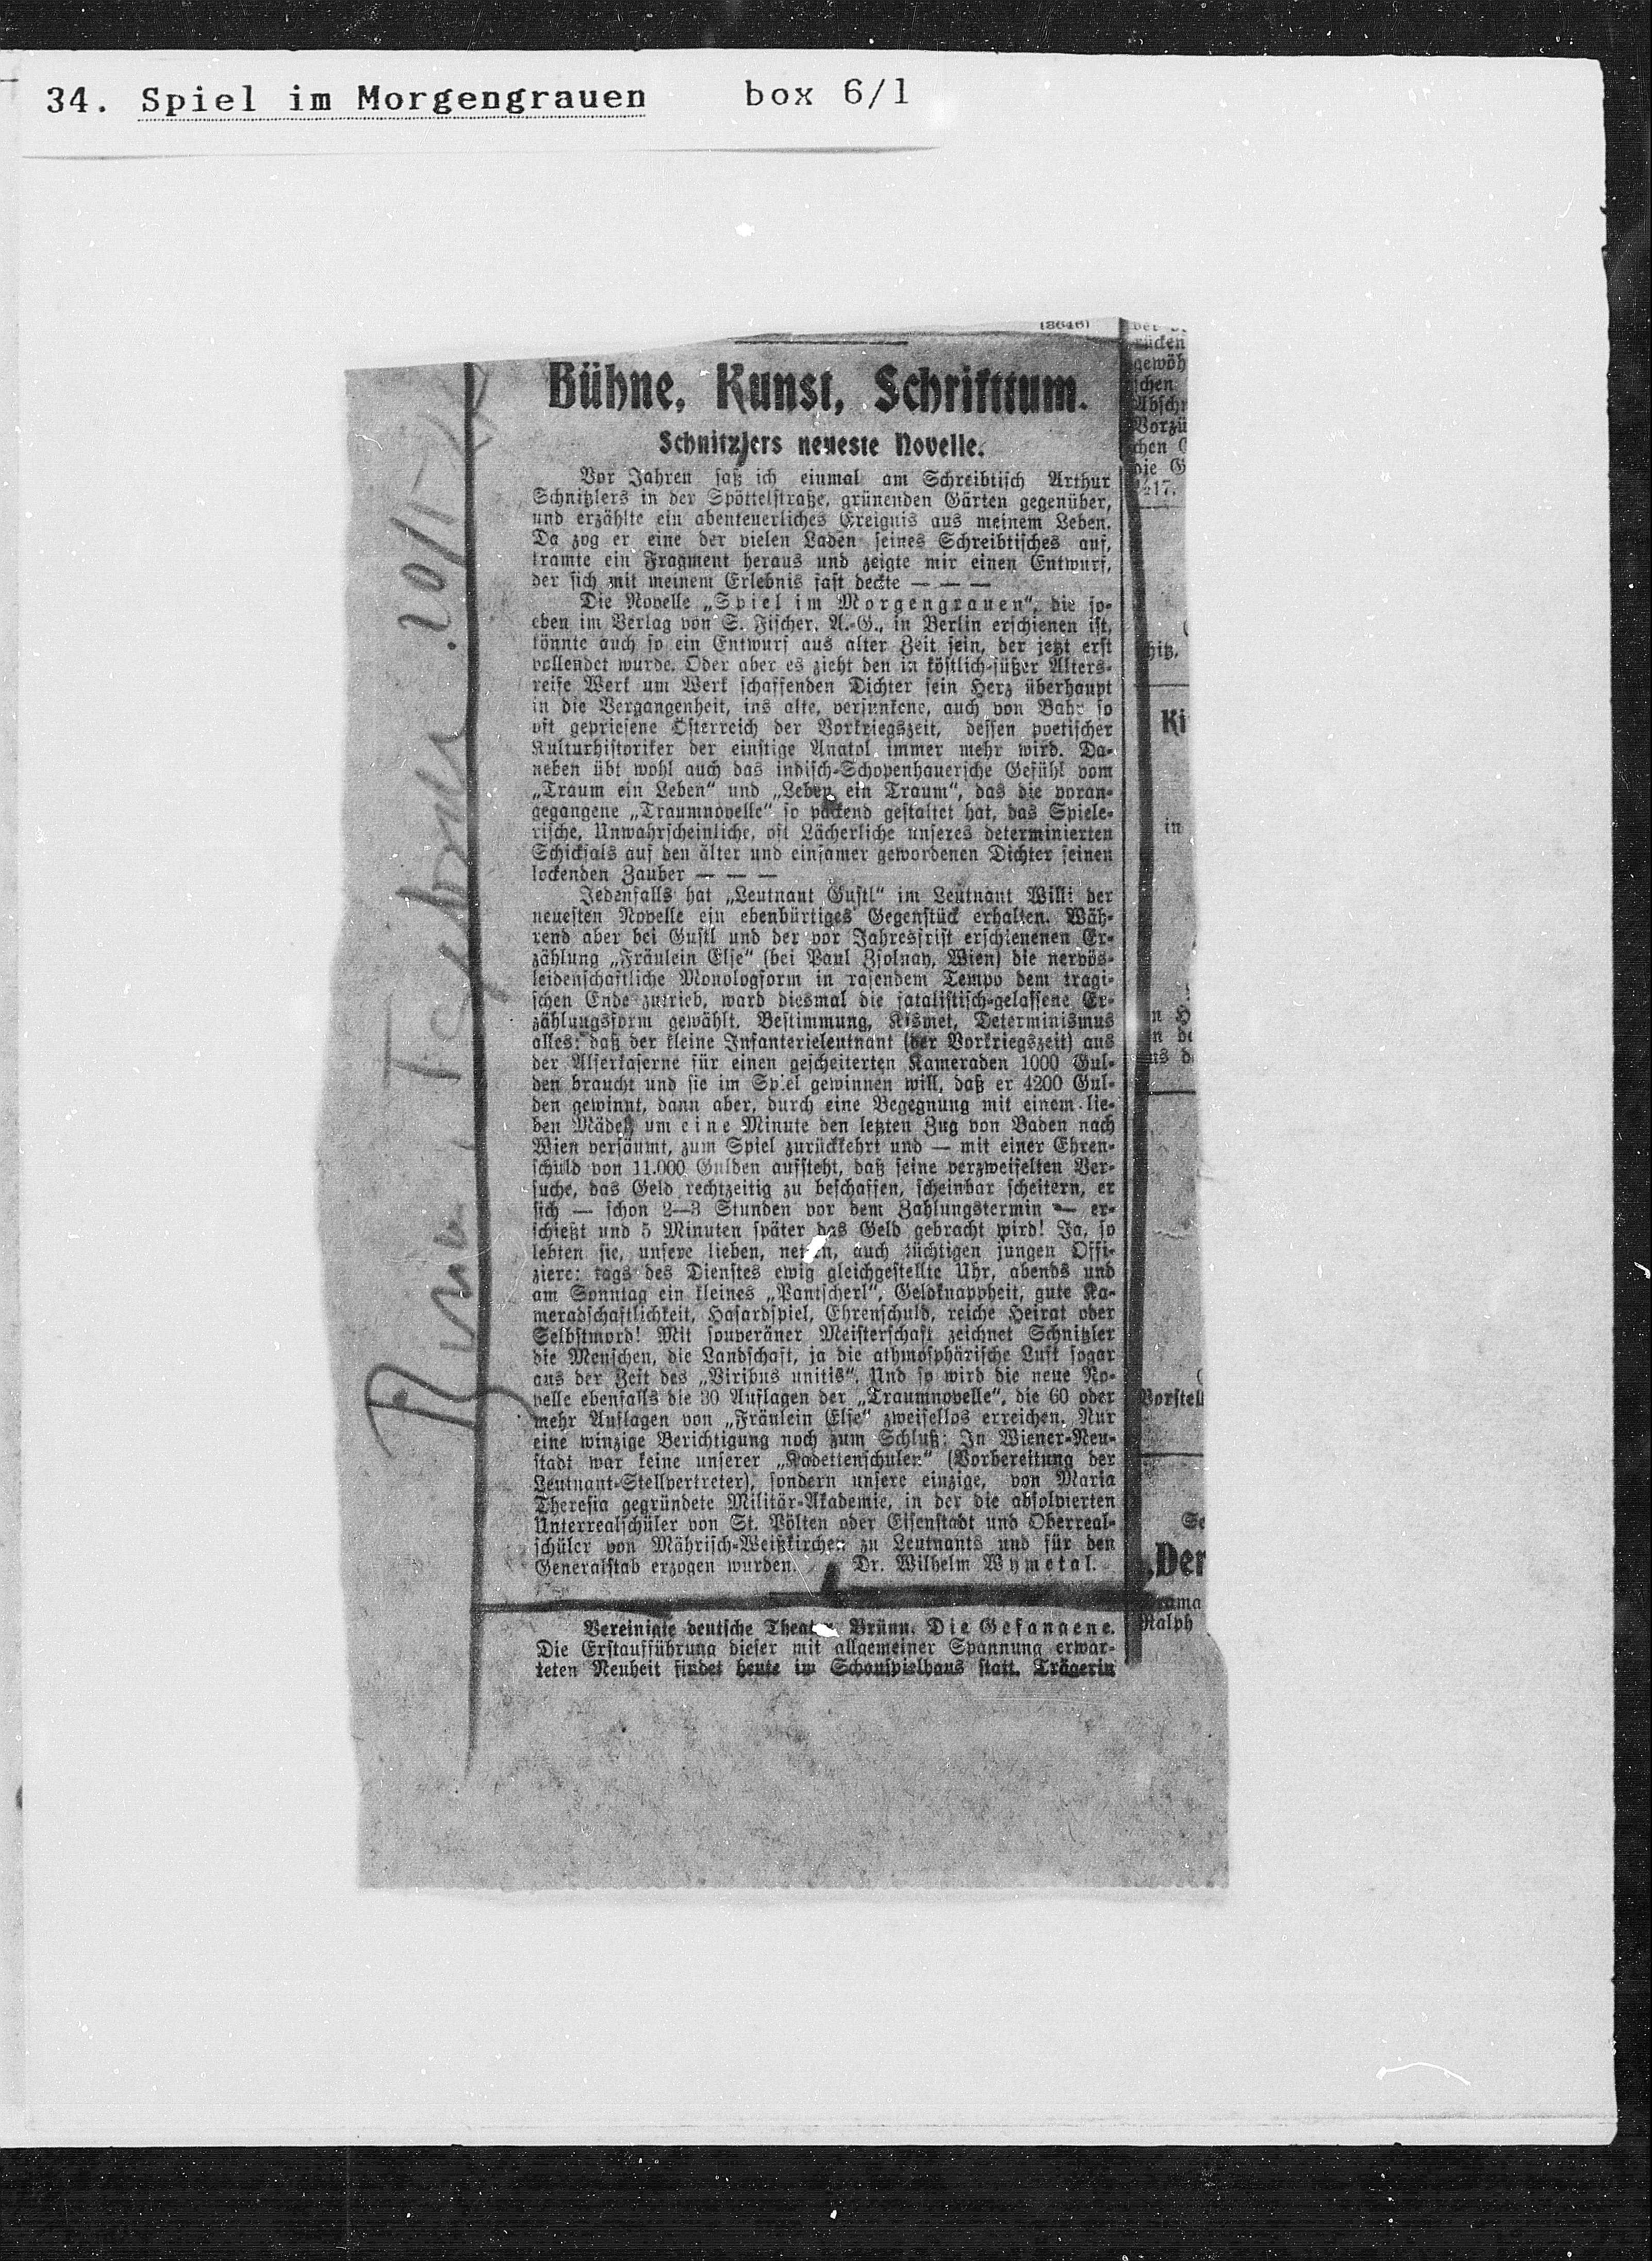 34. Spiel im Morgengrauen box 6/1
Bühne, Kunst, Schrifttum.
Schnitzlers neueste Novelle.
Vor Jahren saß ich einmal am Schreibtisch Arthur
Schnitzlers in der Spöttelstraße, grünenden Gärten gegenüber,
und erzählte ein abenteuerliches Ereignis aus meinem Leben.
Da zog er eine der vielen Laden seines Schreibtisches auf,
kramte ein Fragment heraus und zeigte mir einen Entwurf,
der sich mit meinem Erlebnis fast deckte — — —
Die Novelle „Spiel im Morgengrauen“, die so-
eben im Verlag von S. Fischer, A.-G., in Berlin erschienen ist,
könnte auch so ein Entwurf aus alter Zeit sein, der jetzt erst
vollendet wurde. Oder aber es zieht den in köstlich-süßer Alters-
reife Werk um Werk schaffenden Dichter sein Herz überhaupt
in die Vergangenheit, ins alte, versunkene, auch von Bahr so
oft gepriesene Österreich der Vorkriegszeit, dessen poetischer
Kulturhistoriker der einstige Anatol immer mehr wird. Da-
neben übt wohl auch das indisch-Schopenhauersche Gefühl vom
„Traum ein Leben“ und „Leben ein Traum“, das die voran-
gegangene „Traumnovelle“ so packend gestaltet hat, das Spiele-
rische, Unwahrscheinliche, oft Lächerliche unseres determinierten
Schicksals auf den älter und einsamer gewordenen Dichter seinen
lockenden Zauber — — —
Jedenfalls hat „Leutnant Gustl“ im Leutnant Willi der
neuesten Novelle ein ebenbürtiges Gegenstück erhalten. Wäh-
rend aber bei Gustl und der vor Jahresfrist erschienenen Er-
zählung „Fräulein Else“ (bei Paul Zsolnay, Wien) die nervös-
leidenschaftliche Monologform in rasendem Tempo dem tragi-
schen Ende zutrieb, ward diesmal die fatalistisch-gelassene Er-
zählungsform gewählt. Bestimmung, Kismet, Determinismus
alles: daß der kleine Infanterieleutnant (der Vorkriegszeit) aus
der Alserkaserne für einen gescheiterten Kameraden 1000 Gul-
den braucht und sie im Spiel gewinnen will, daß er 4200 Gul-
den gewinnt, dann aber, durch eine Begegnung mit einem lie-
ben Mädel um eine Minute den letzten Zug von Baden nach
Wien versäumt, zum Spiel zurückkehrt und — mit einer Ehren-
schuld von 11.000 Gulden aufsteht, daß seine verzweifelten Ver-
suche, das Geld rechtzeitig zu beschaffen, scheinbar scheitern, er
sich — schon 2—3 Stunden vor dem Zahlungstermin — er-
schießt und 5 Minuten später das Geld gebracht wird! Ja, so
lebten sie, unsere lieben, netten, auch tüchtigen jungen Offi-
ziere: tags des Dienstes ewig gleichgestellte Uhr, abends und
am Sonntag ein kleines „Pantscherl“, Geldknappheit, gute Ka-
meradschaftlichkeit, Hasardspiel, Ehrenschuld, reiche Heirat oder
Selbstmord! Mit souveräner Meisterschaft zeichnet Schnitzler
die Menschen, die Landschaft, ja die athmosphärische Luft sogar
aus der Zeit des „Viribus unitis“. Und so wird die neue No-
velle ebenfalls die 30 Auflagen der „Traumnovelle“, die 60 oder
mehr Auflagen von „Fräulein Else“ zweifellos erreichen. Nur
eine winzige Berichtigung noch zum Schluß: In Wiener-Neu-
stadt war keine unserer „Kadettenschulen“ (Vorbereitung der
Leutnant-Stellvertreter), sondern unsere einzige, von Maria
Theresia gegründete Militär-Akademie, in der die absolvierten
Unterrealschüler von St. Pölten oder Eisenstadt und Oberreal-
schüler von Mährisch-Weißkirchen zu Leutnants und für den
Generalstab erzogen wurden. Dr. Wilhelm Wymetal.
Vereinigte deutsche Theater Brünn. Die Gefangene.
Die Erstaufführung dieser mit allgemeiner Spannung erwar-
teten Neuheit findet heute im Schauspielhaus statt. Trägerin
rücken
gewöh
schen
Abschn
Vorzü
chen
die G
½17.
Ki
in
Vorstell
Der
Ralph